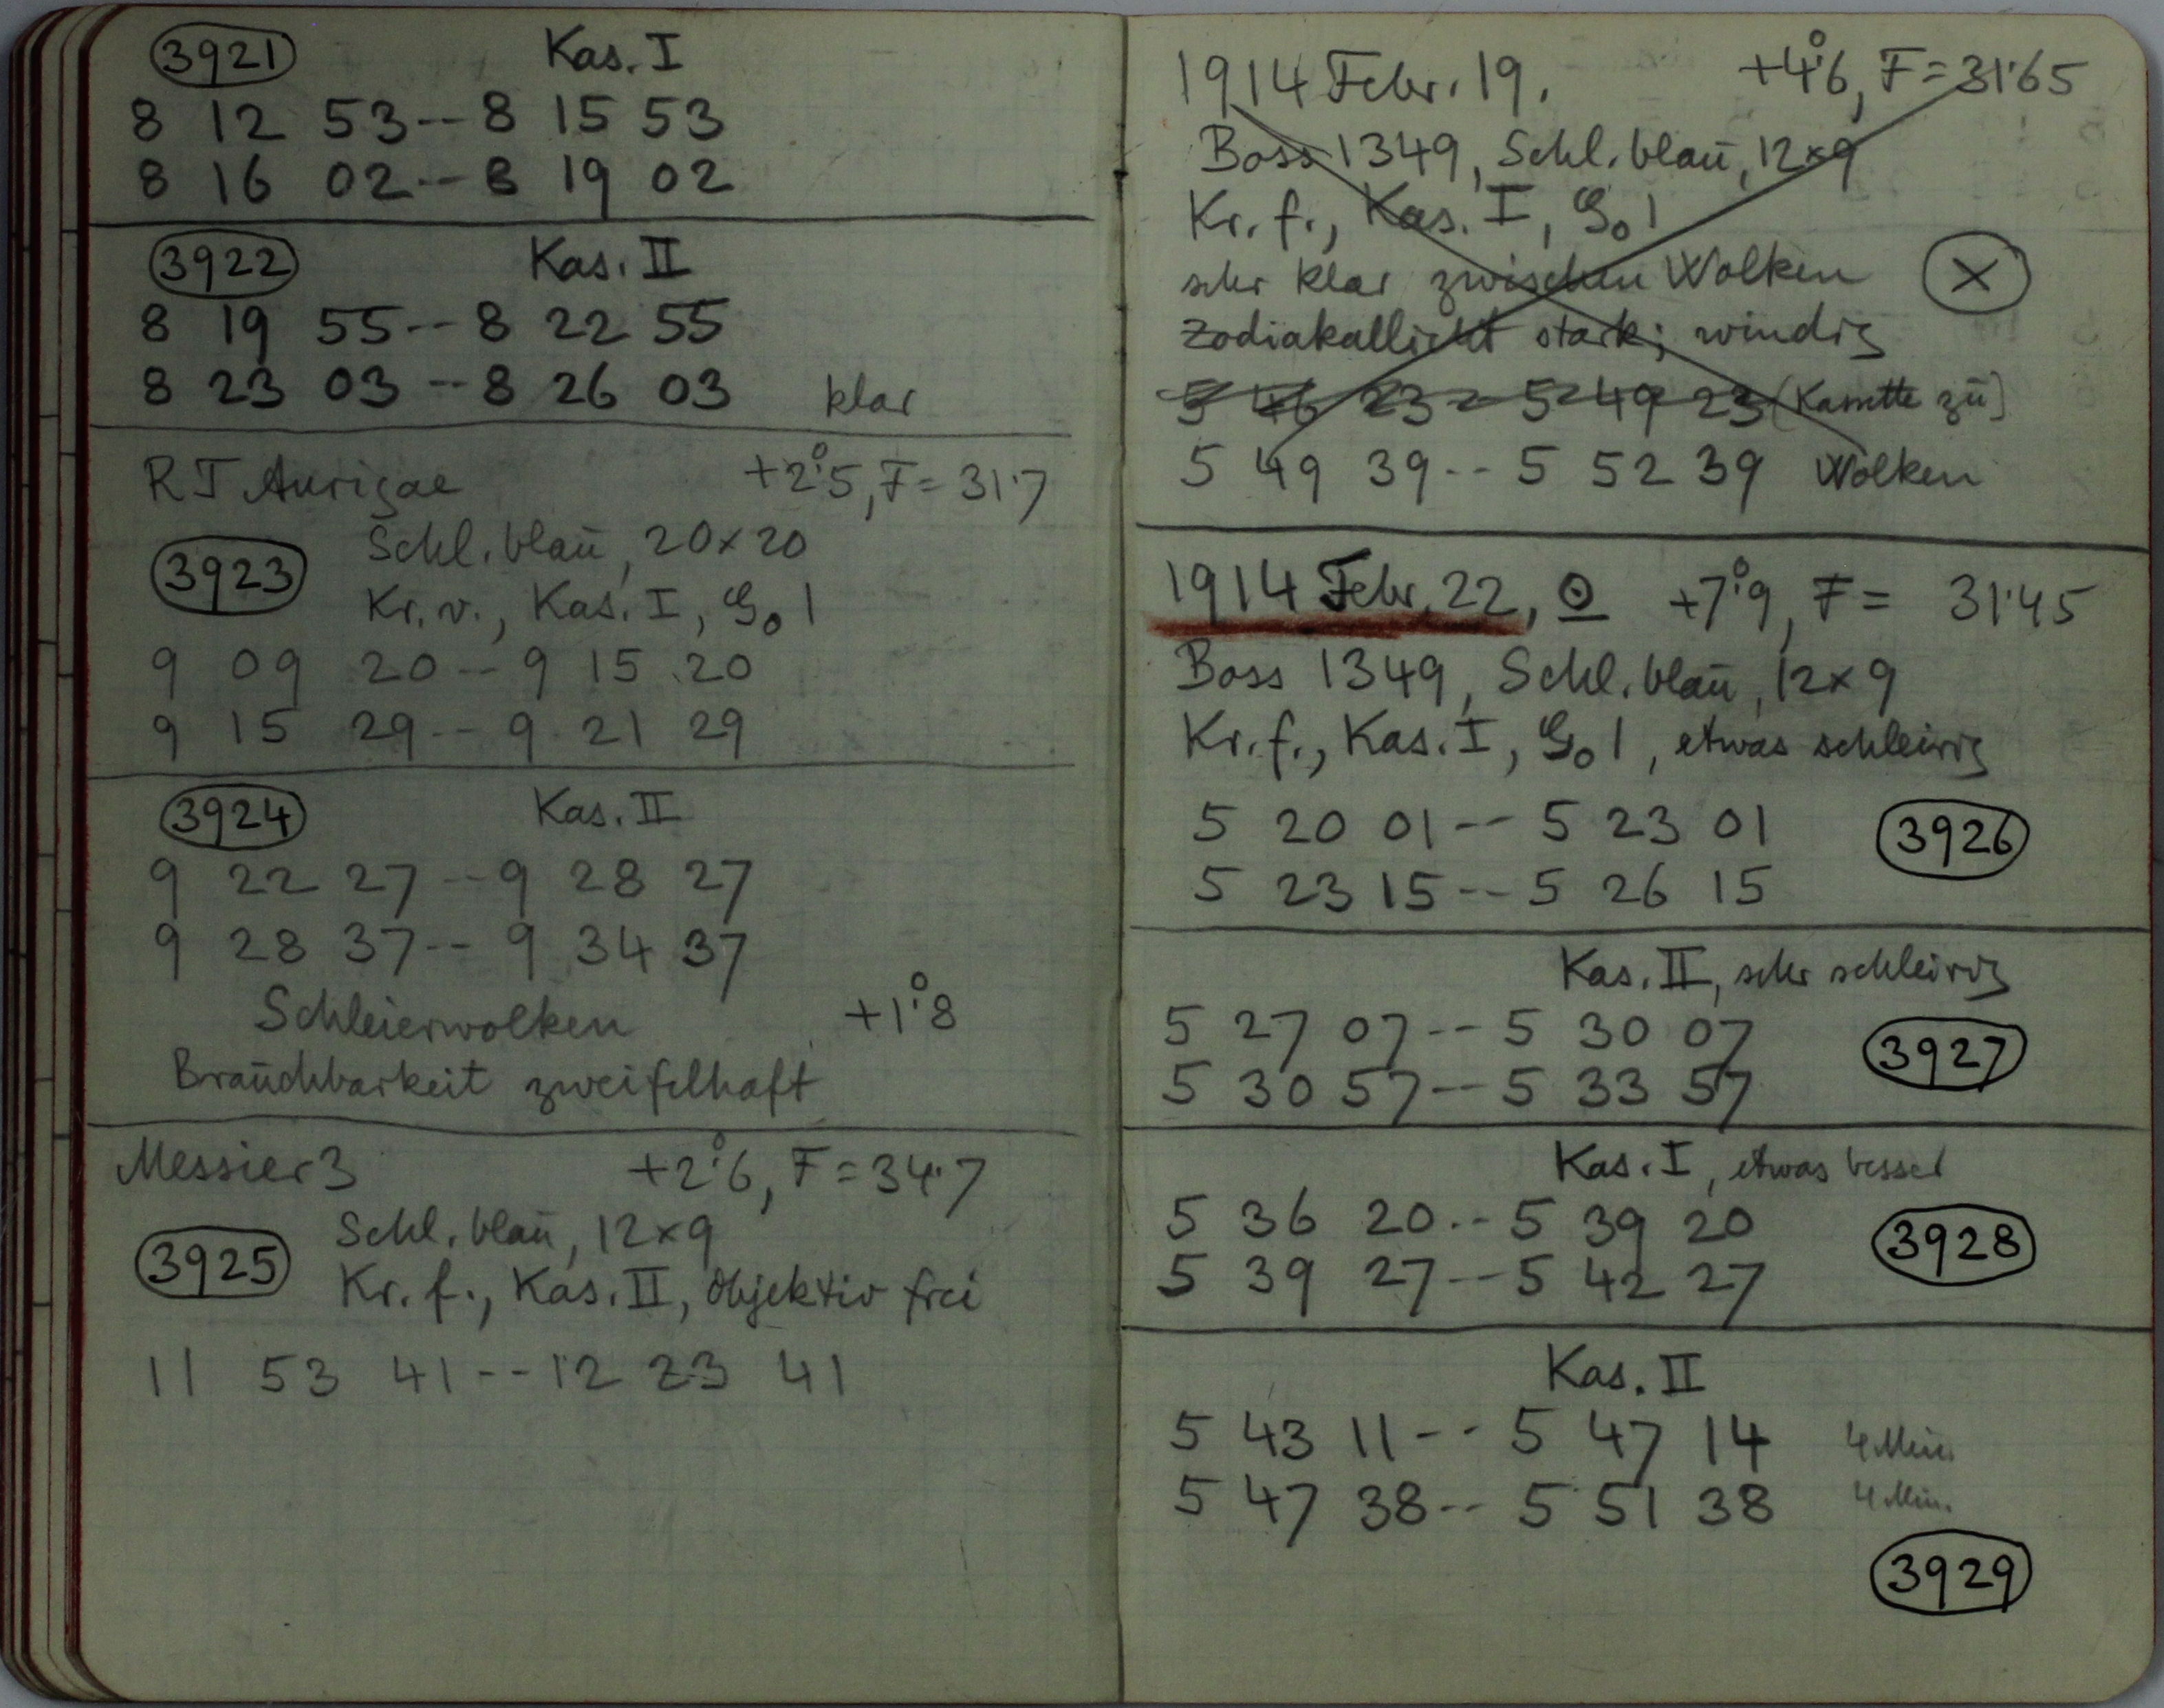 3921 Kas. I
8 12 53 -- 8 15 53
8 16 02 -- 8 19 02
3922 Kas. II
8 19 55 -- 8 22 55
8 23 03 -- 8 26 03 klar
RT Aurigae +2°.5, F = 31.7
Schl. blau, 20×20
3923
Kr. v., Kas. I, G₀ 1
9 09 20 -- 9 15 20
9 15 29 -- 9 21 29
3924 Kas. II
9 22 27 -- 9 28 27
9 28 37 -- 9 34 37
Schleierwolken +1°.8
Brauchbarkeit zweifelhaft
Messier 3 +2°.6, F = 34.7
Schl. blau, 12×9
3925
Kr. f., Kas. II, Objektiv frei
11 53 41 -- 12 23 41
1914 Febr. 19. +4°.6, F = 31.65
Boss 1349, Schl. blau, 12×9
Kr. f., Kas. I, G₀ 1
sehr klar zwischen Wolken ×
Zodiakallicht stark; windig
5 46 23 -- 5 49 23 (Kasette zu)
5 49 39 -- 5 52 39 Wolken
1914 Febr. 22, ☉ +7°.9, F = 31.45
Boss 1349, Schl. blau, 12×9
Kr. f., Kas. I, G₀ 1, etwas schleirig
5 20 01 -- 5 23 01 3926
5 23 15 -- 5 26 15
Kas. II, sehr schleirig
5 27 07 -- 5 30 07 3927
5 30 57 -- 5 33 57
Kas. I, etwas besser
5 36 20 -- 5 39 20 3928
5 39 27 -- 5 42 27
Kas. II
5 43 11 -- 5 47 14 4 Min.
5 47 38 -- 5 51 38 4 Min.
3929